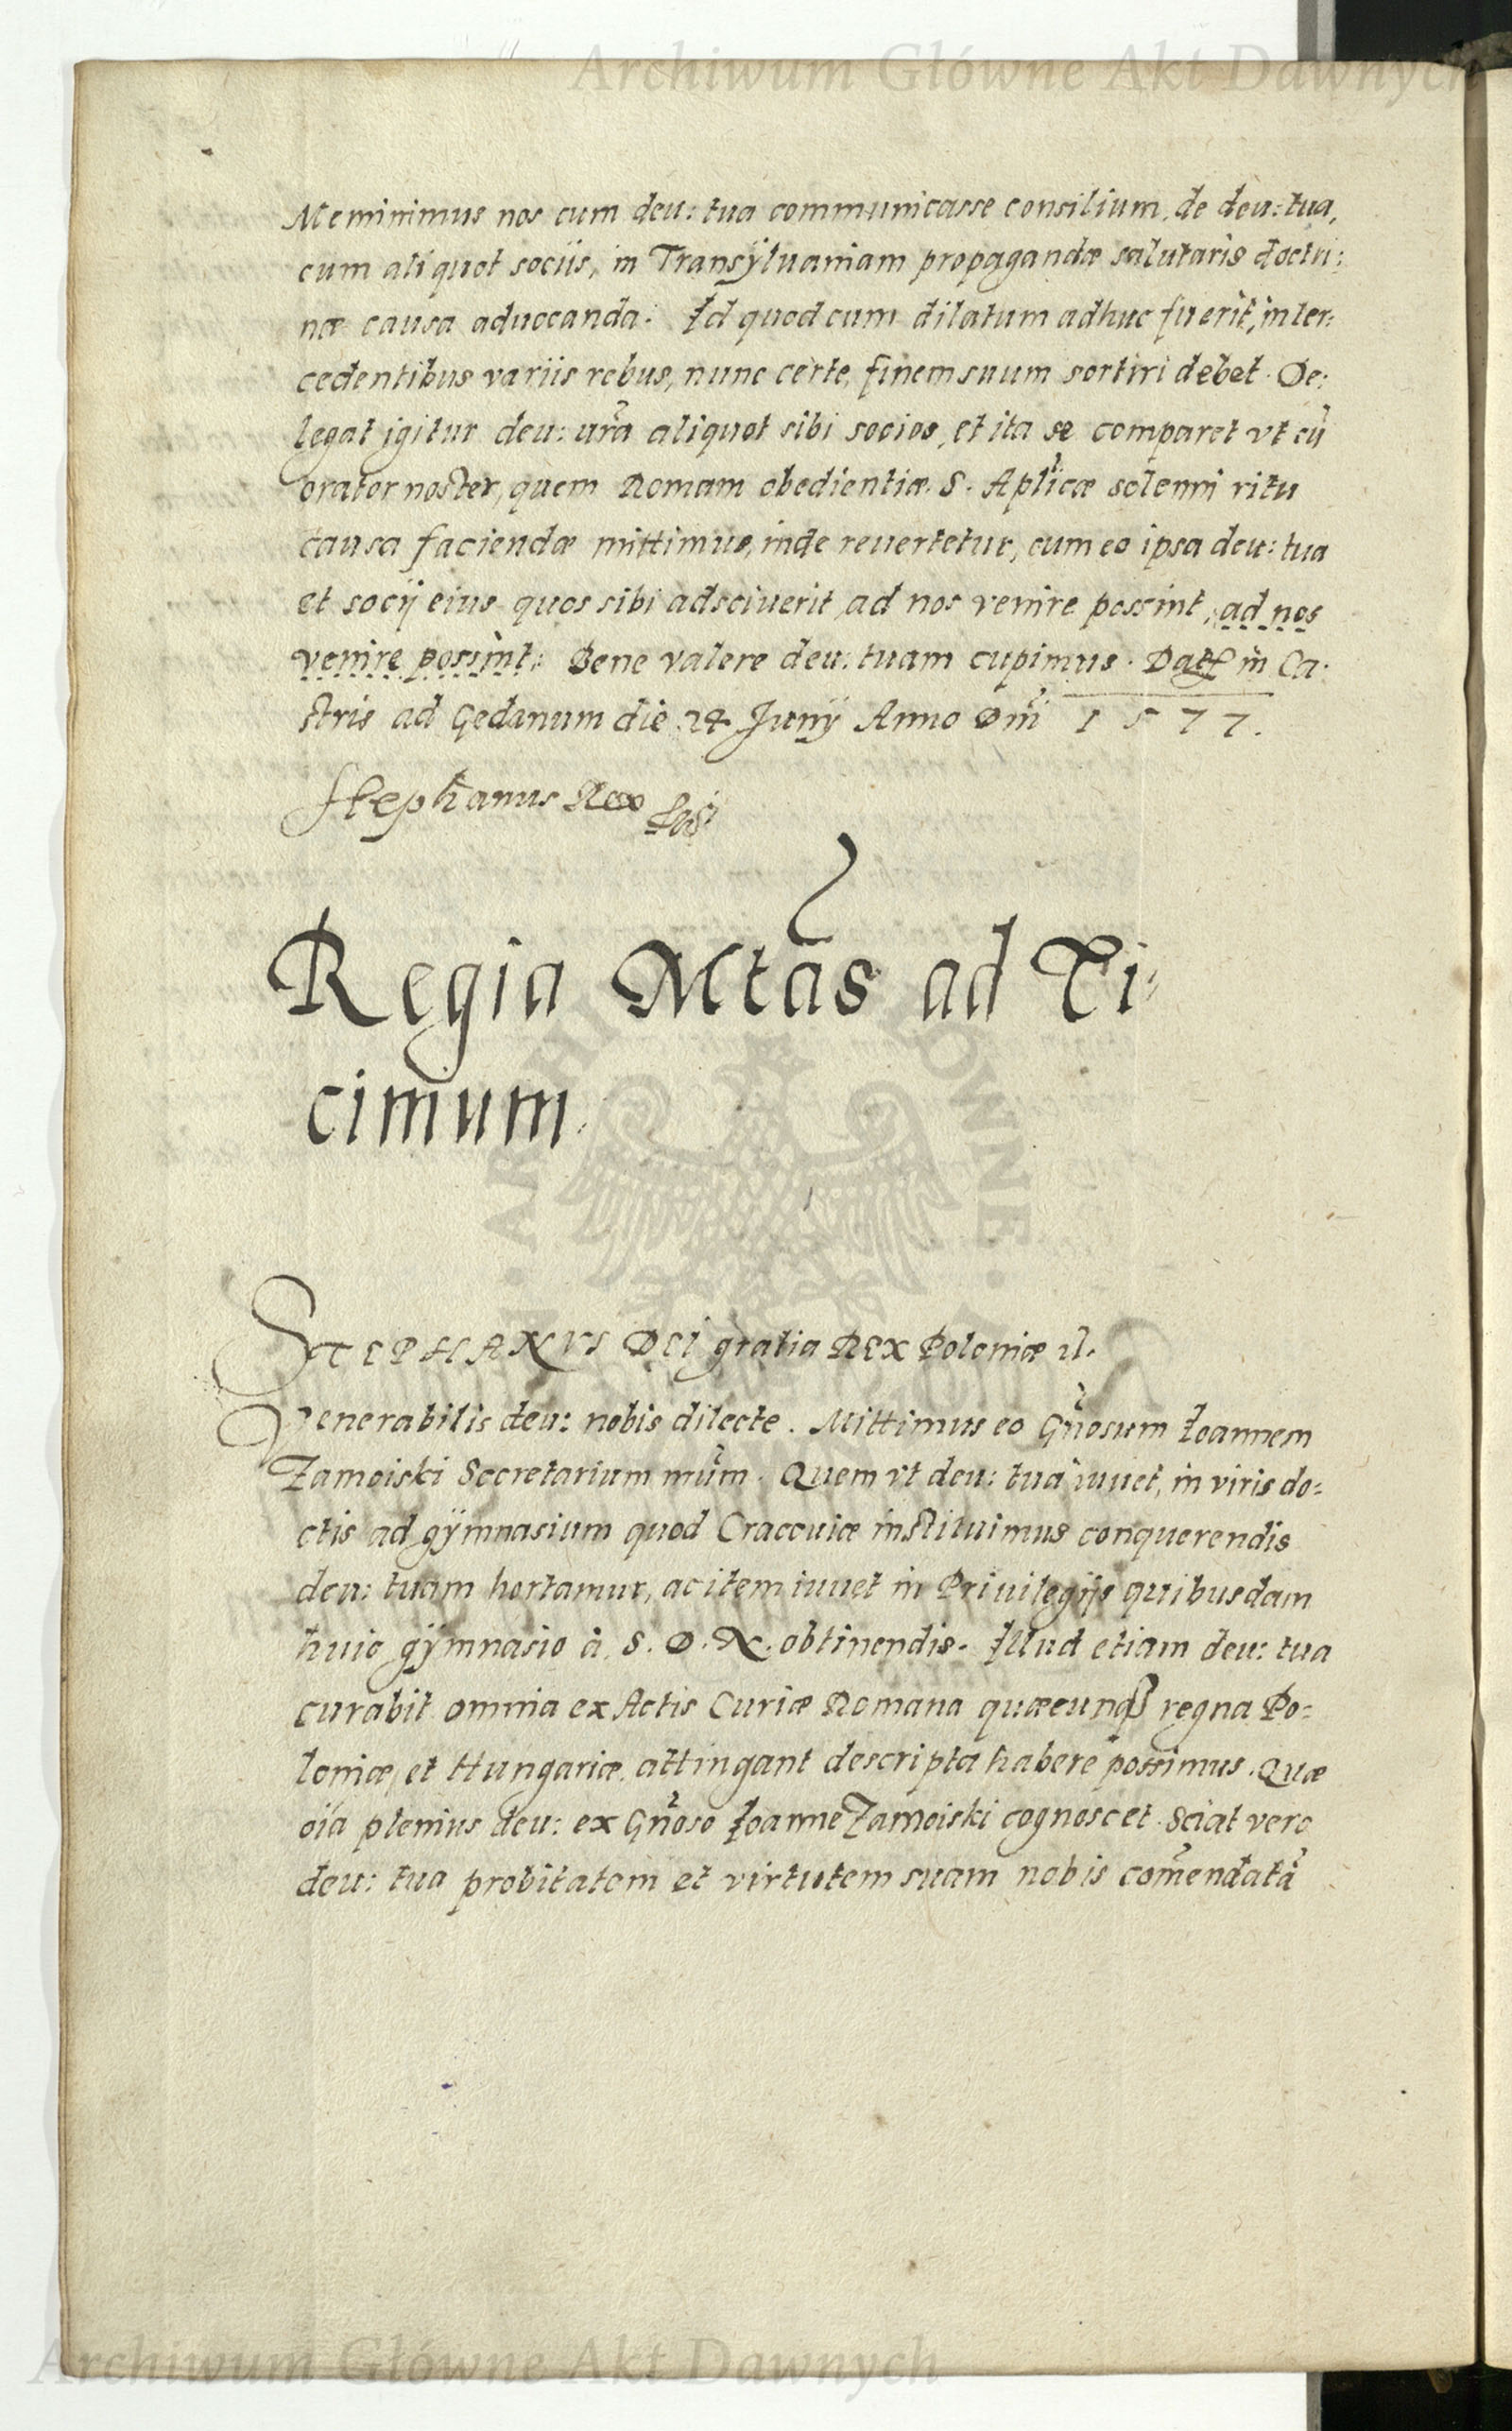 Archiwum Główne Akt Dawnych
Meminimus nos cum deu: tua communicasse consilium, de deu: tua,
cum aliquot sociis, in Transÿluaniam propagandæ salutaris doctri:
næ causa aduocanda. Id quod cum dilatum adhuc fuerit, inter:
cedentibus variis rebus, nunc certe, finem suum sortiri debet. De:
legat igitur deu: ur̃a aliquot sibi socios, et ita se comparet vt cũ
orator noster, quem Romam obedientiæ S. Apl̃icæ solenni ritu
causa faciendæ mittimus, inde reuertetur, cum eo ipsa deu: tua
et socij eius quos sibi adsciuerit, ad nos venire possint, ad nos
venire possint: Bene valere deu: tuam cupimus. Dat in Ca:
stris ad Gedanum die 24 Junij Anno Dnĩ 1577.
Stephanus Rex
Regia Mtas ad Ti:
cimum.
STEPHANVS DEI gratia REX Poloniæ
Venerabilis deu: nobis dilecte. Mittimus eo Gñosum Ioannem
Zamoiski Secretarium nrũm. Quem vt deu: tua iuuet, in viris do:
ctis ad gÿmnasium quod Cracouiæ instituimus conquerendis
deu: tuam hortamur, ac item iuuet in Priuilegijs quibusdam
huic gÿmnasio à S. D. N. obtinendis. Illud etiam deu: tua
curabit omnia ex Actis Curiæ Romana quæcunq regna Po:
loniæ, et Hungariæ attingant descripta habere possimus. Quæ
oĩa plenius deu: ex Gñoso Ioanne Zamoiski cognoscet. Sciat vero
deu: tua probitatem et virtutem suam nobis com̃endatã
Archiwum Główne Akt Dawnych